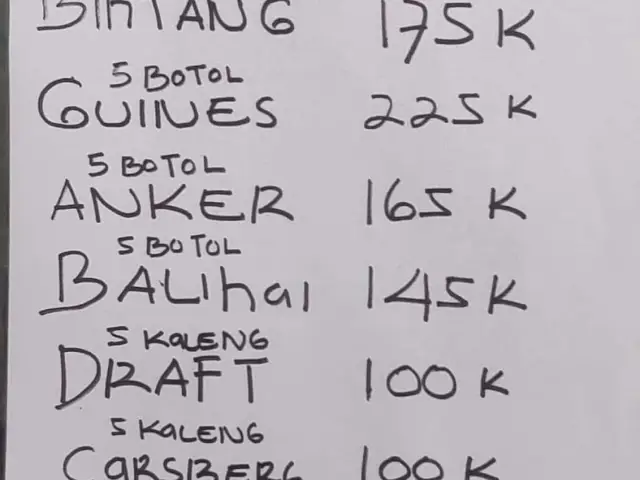 BINTANG 175 K
5 BOTOL
GUINES 225 K
5 BOTOL
ANKER 165 K
5 BOTOL
BALIHAI 145 K
5 KALENG
DRAFT 100 K
5 KALENG
CARSBERG 100 K